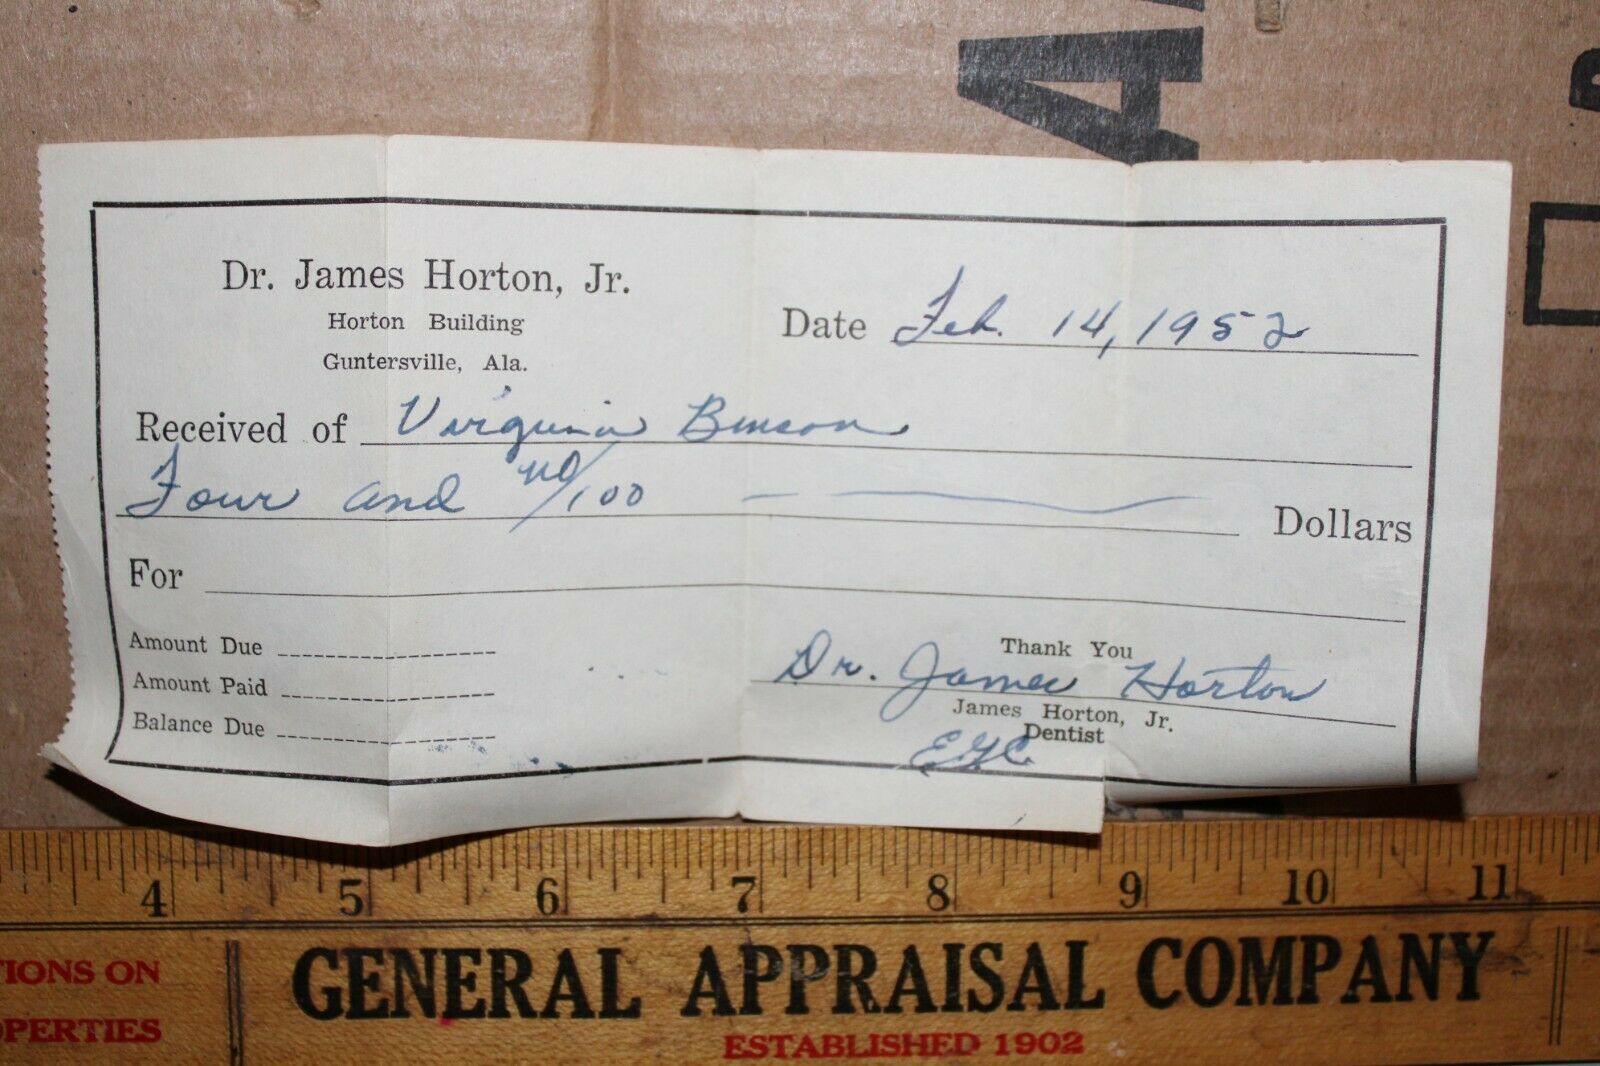 Dr. James Horton, Jr.
Horton Building
Guntersville, Ala.
Date Feb. 14, 1952
Received of Virginia Benson
Four and no/100 Dollars
For
Amount Due
Amount Paid
Balance Due
Thank You
Dr. James Horton
James Horton, Jr.
Dentist
4 5 6 7 8 9 10 11
TIONS ON
OPERTIES
GENERAL APPRAISAL COMPANY
ESTABLISHED 1902